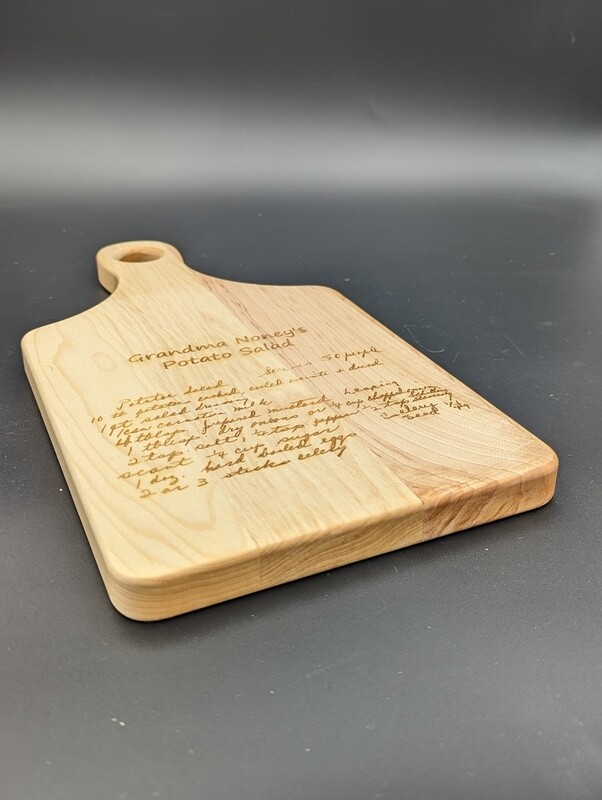 Grandma Noney's
Potato Salad
Serves 50 people
Potatoe Salad
10 lb potatoes cooked, cooled & diced
1 qt salad dressing
1 can carnation milk
prepared mustard heaping
1 tbsp. dry onions or ½ cup chopped
2 tsp. salt, ½ tsp pepper
scant ¼ cup sugar celery seed
1 doz. hard boiled eggs
2 or 3 stick celery